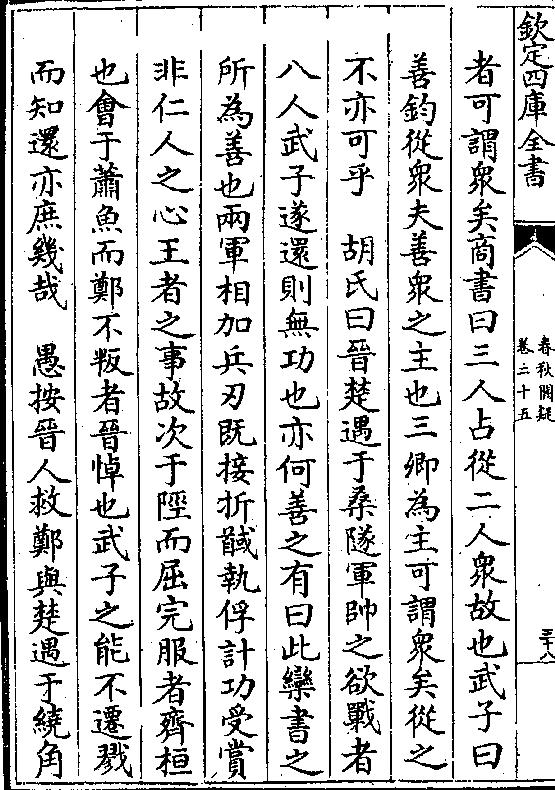 欽定四庫全書
春秋闕疑
卷二十五
三十八
者可謂衆矣商書曰三人占從二人衆故也武子曰
善鈞從衆夫善衆之主也三卿為主可謂衆矣從之
不亦可乎　胡氏曰晉楚遇于桑隧軍帥之欲戰者
八人武子遂還則無功也亦何善之有曰此欒書之
所為善也兩軍相加兵刃既接折馘執俘計功受賞
非仁人之心王者之事故次于陘而屈完服者齊桓
也會于蕭魚而鄭不叛者晉悼也武子之能不遷戮
而知還亦庶幾哉　愚按晉人救鄭與楚遇于繞角